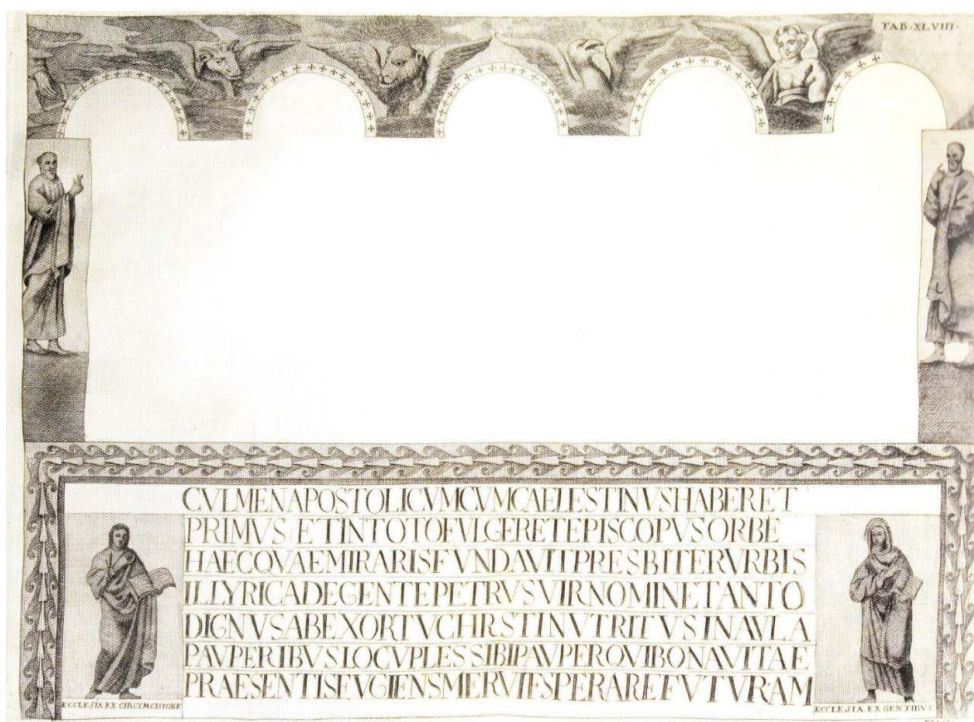 TAB. XLVIII.
CVLMENAPOSTOLICVMCVMCAELESTINVSHABERET
PRIMVS ETINTOTOFVLGERETEPISCOPVSORBE
HAECQVAEMIRARISFVNDAVITPRESBITERVRBIS
ILLYRICADEGENTEPETRVSVIRNOMINETANTO
DIGNVSABEXORTVCHRSTINVTRITVSINAVLA
PAVPERIBVSLOCVPLESSIBIPAVPERQVIBONAVITAE
PRAESENTISFVGIENSMERVITSPERAREFVTVRAM
ECCLESIA EX CIRCVMCISIONE
ECCLESIA EX GENTIBVS